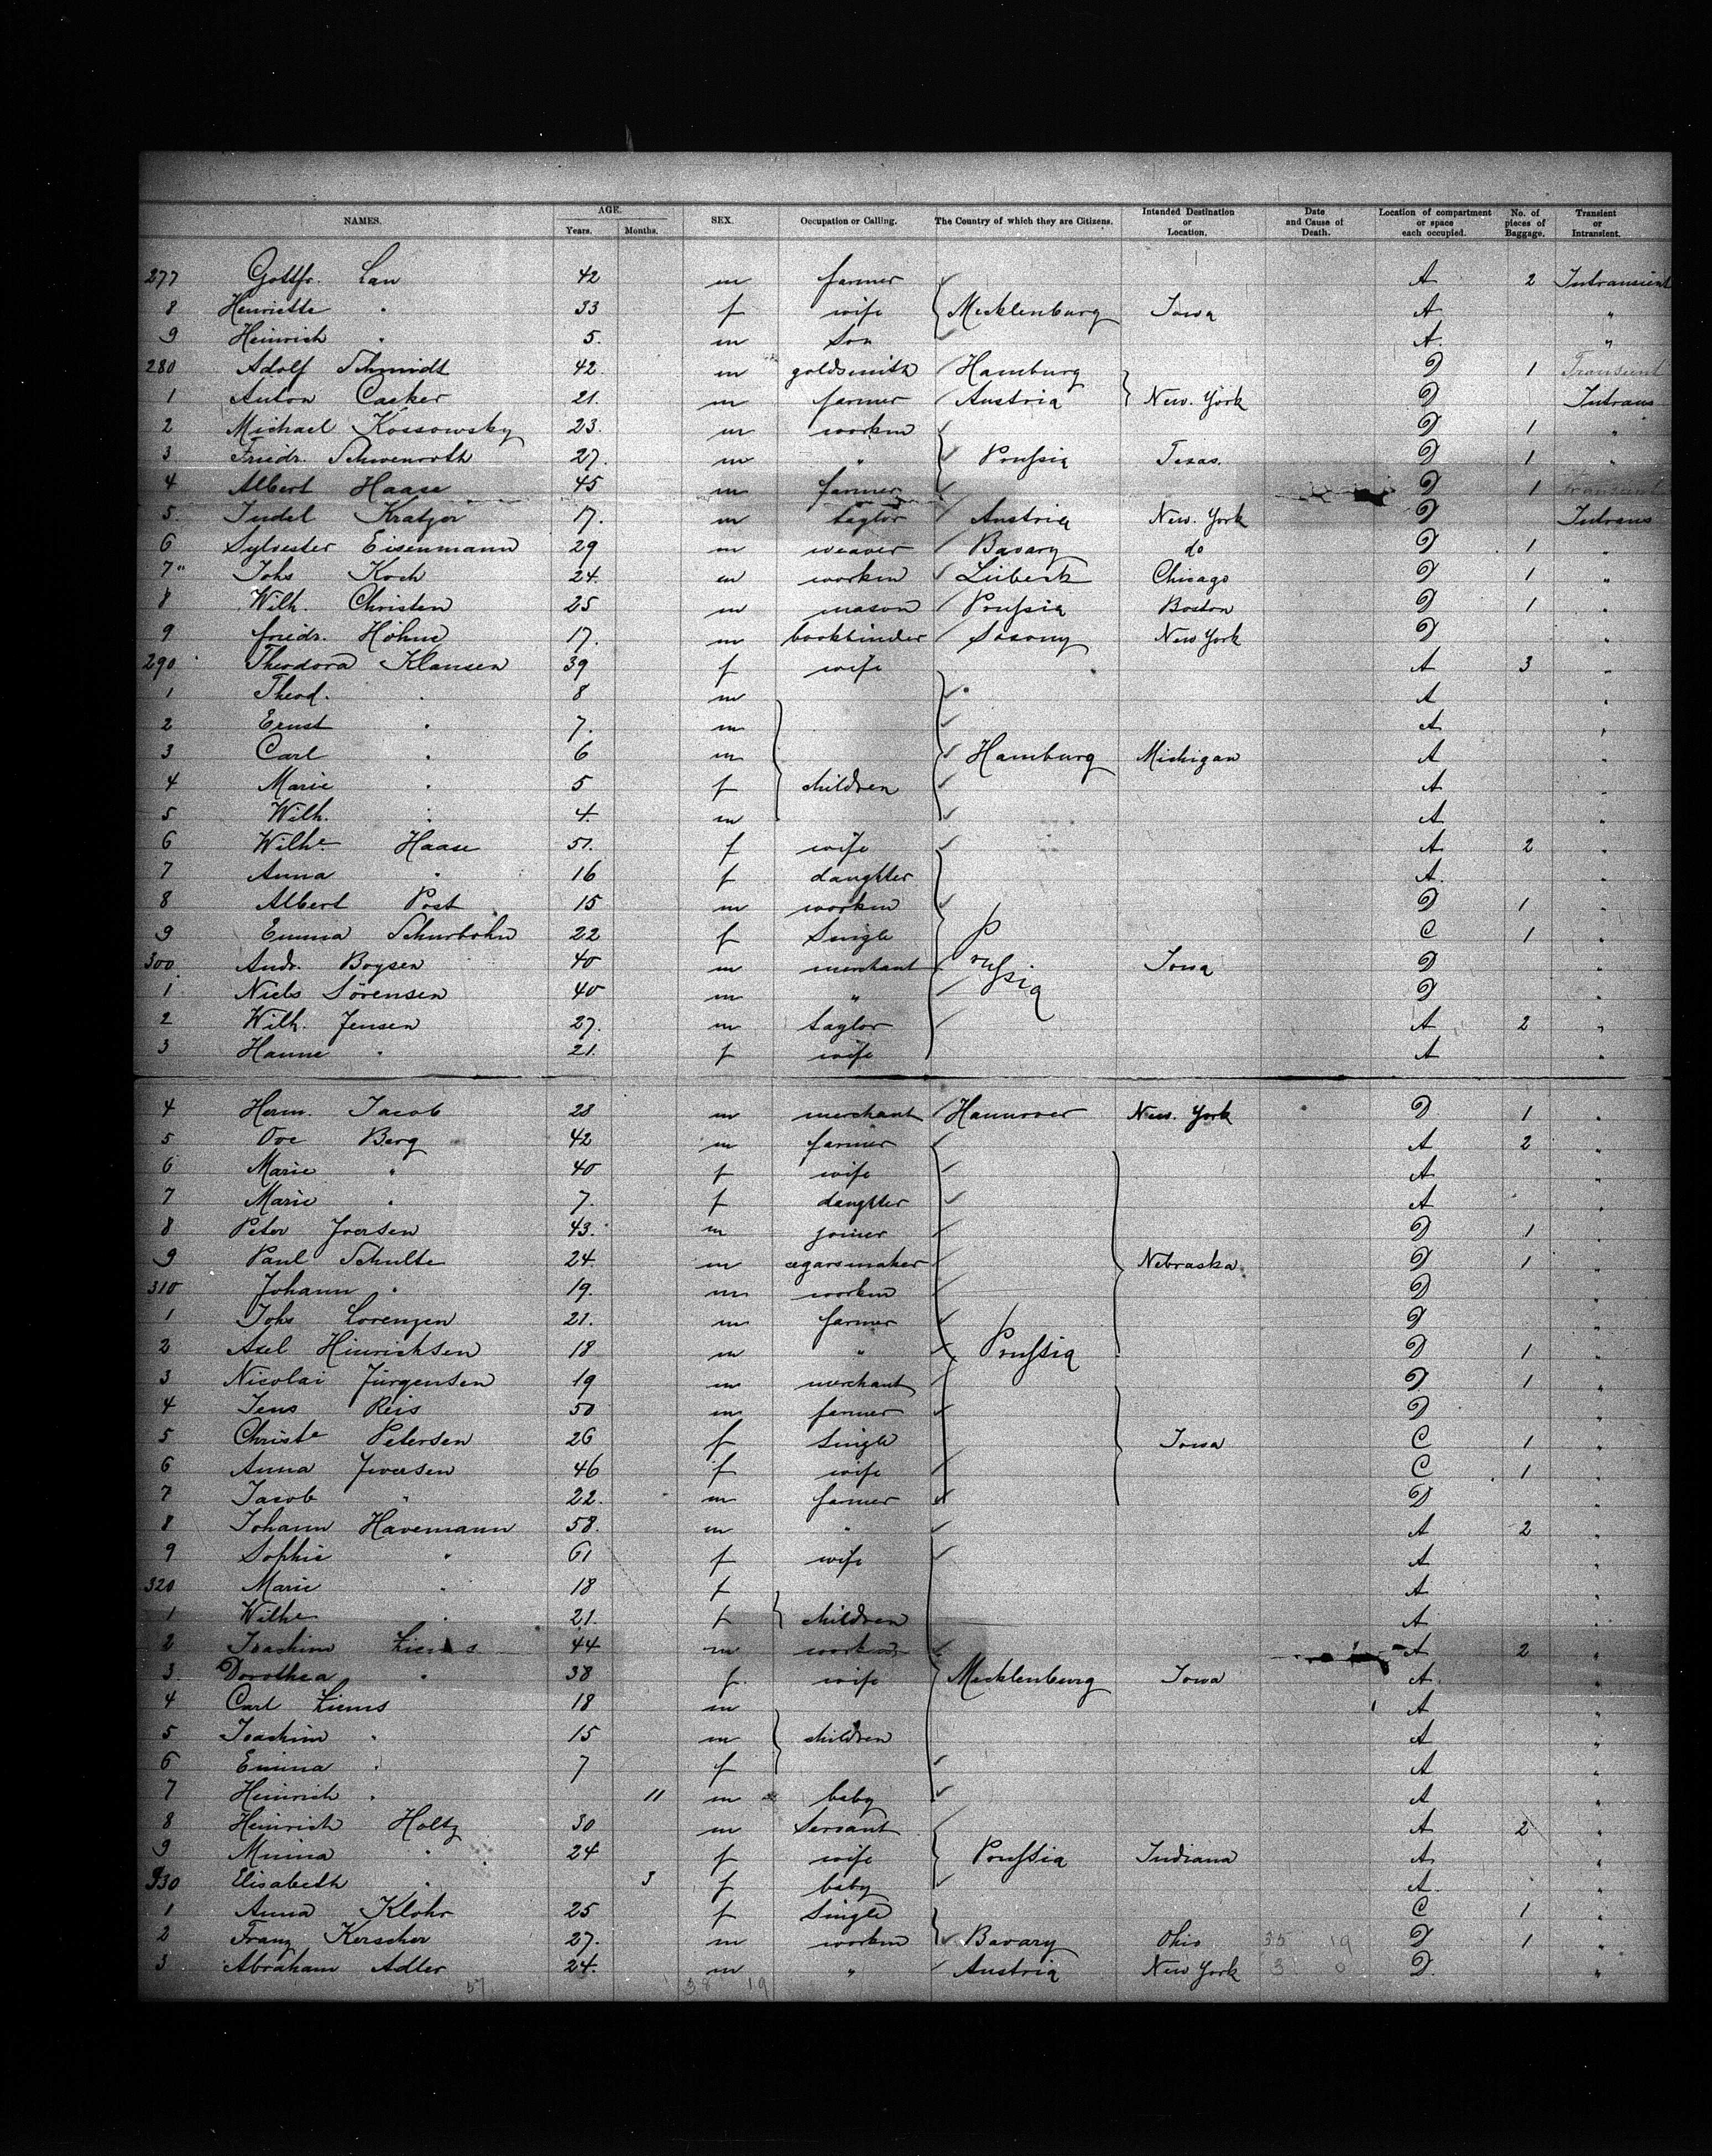 NAMES. AGE. Years. Months. SEX. Occupation or Calling. The Country of which they are Citizens. Intended Destination or Location. Date and Cause of Death. Location of compartment or space each occupied. No. of pieces of Baggage. Transient or Intransient.
277 Gottfr. Lau 42 m farmer A 2 Intransient
8 Henriette " 33 f wife Mecklenburg Iowa A "
9 Heinrich " 5. m Son A. "
280 Adolf Schmidt 42. m goldsmith Hamburg D 1 Transient
1 Anton Casker 21. m farmer Austria New. York D Intrans
2 Michael Kossowsky 23. m workm D 1 "
3 Friedr. 27. m " Prußia Texas. D 1 "
4 Albert Haase 45 m farmer D 1 transient
5. Judel Kratzor 17. m taylor Austria New. York D Intrans
6 Sylvester Eisenmann 29 m weaver Bavary do D 1 "
7 Johs Koch 24. m workm Lübeck Chicago D 1 "
8 Wilh. Christen 25 m mason Prußia Boston D 1 "
9 friedr. Höhne 17. m bookbinder Saxony New York D "
290 Theodora Klausen 39 f wife A 3 "
1 Theod. " 8 m A "
2 Ernst " 7. m A "
3 Carl " 6 m Hamburg Michigan A "
4 Marie " 5 f children A "
5 Wilh. " 4. m A "
6 Wilhe Haase 51. f wife A 2 "
7 Anna " 16 f daughter A. "
8 Albert Post 15 m workm D 1 "
9 Emma Schurbohn 22 f Single C 1 "
300 Andr. Boysen 40 m merchant Prußia Iowa D "
1 Niels Sörensen 40 m " D "
2 Wilh. Jensen 27. m taylor A 2 "
3 Hanne " 21. f wife A "
4 Herm. Jacob 28 m merchant Hannover New. York D 1 "
5 Ove Berg 42 m farmer A 2 "
6 Marie " 40 f wife A "
7 Marie " 7. f daughter A "
8 Peter Iversen 43. m joiner D 1 "
9 Paul Schulte 24 m cegarsmaker Nebraska D 1 "
310 Johann " 19. m workm D "
1 Johs Lorenzen 21. m farmer D "
2 Axel Hinrichsen 18 m " Prußia D 1 "
3 Nicolai Jürgensen 19 m merchant D 1 "
4 Jens Reis 50 m farmer D "
5 Christe Petersen 26 f Single Iowa C 1 "
6 Anna Iversen 46 f wife C 1 "
7 Jacob " 22. m farmer D "
8 Johann Havemann 58. m " A 2 "
9 Sophie " 61 f wife A "
320 Marie " 18 f A "
1 Wilhe " 21 f children A "
2 Joachim 44 m workm A 2 "
3 Dorothea " 38 f. wife Mecklenburg Iowa A. "
4 Carl Ziems 18 m A "
5 Joachim " 15 m children A "
6 Emma " 7 f A "
7 Heinrich " 11 m baby A "
8 Heinrich Holtz 30 m Servant A 2 "
9 Minna " 24 f wife Prußia Indiana A "
330 Elisabeth " 3 f baby A "
1 Anna Klohr 25 f Single C 1 "
2 Franz Kerscher 27. m workm Bavary Ohio 35 19 D 1 "
3 Abraham Adler 24. m " Austria New York 3 0 D. "
57 38 19